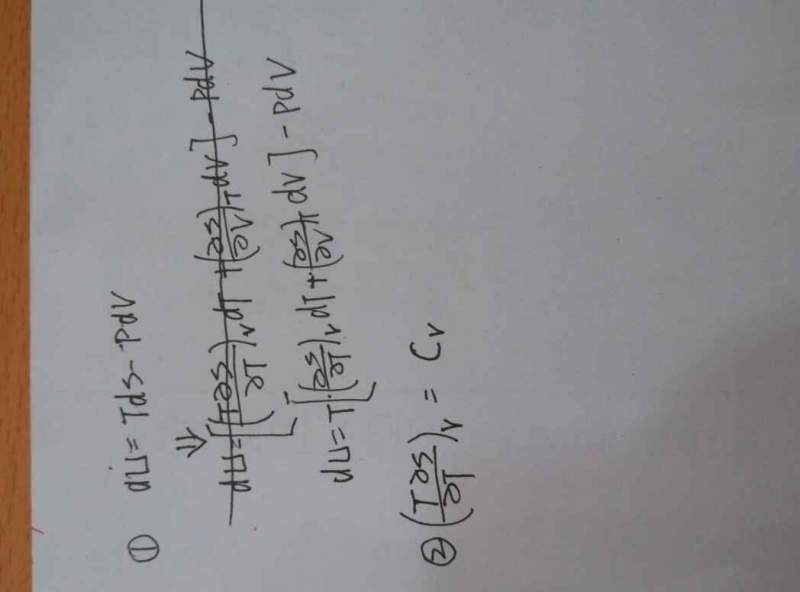 ① dU = TdS - PdV
⇓
dU = [(T∂S/∂T)_V dT + (∂S/∂V)_T dV] - PdV
dU = T·[(∂S/∂T)_V dT + (∂S/∂V)_T dV] - PdV
② (T∂S/∂T)_V = C_V